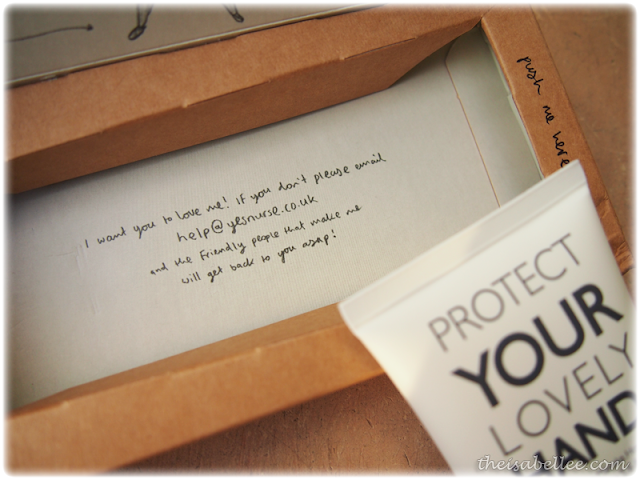 push me here
I want you to love me! if you don't please email
help@yesnurse.co.uk
and the friendly people that make me
will get back to you asap!
PROTECT
YOUR
LOVELY
HAND
theisabellee.com